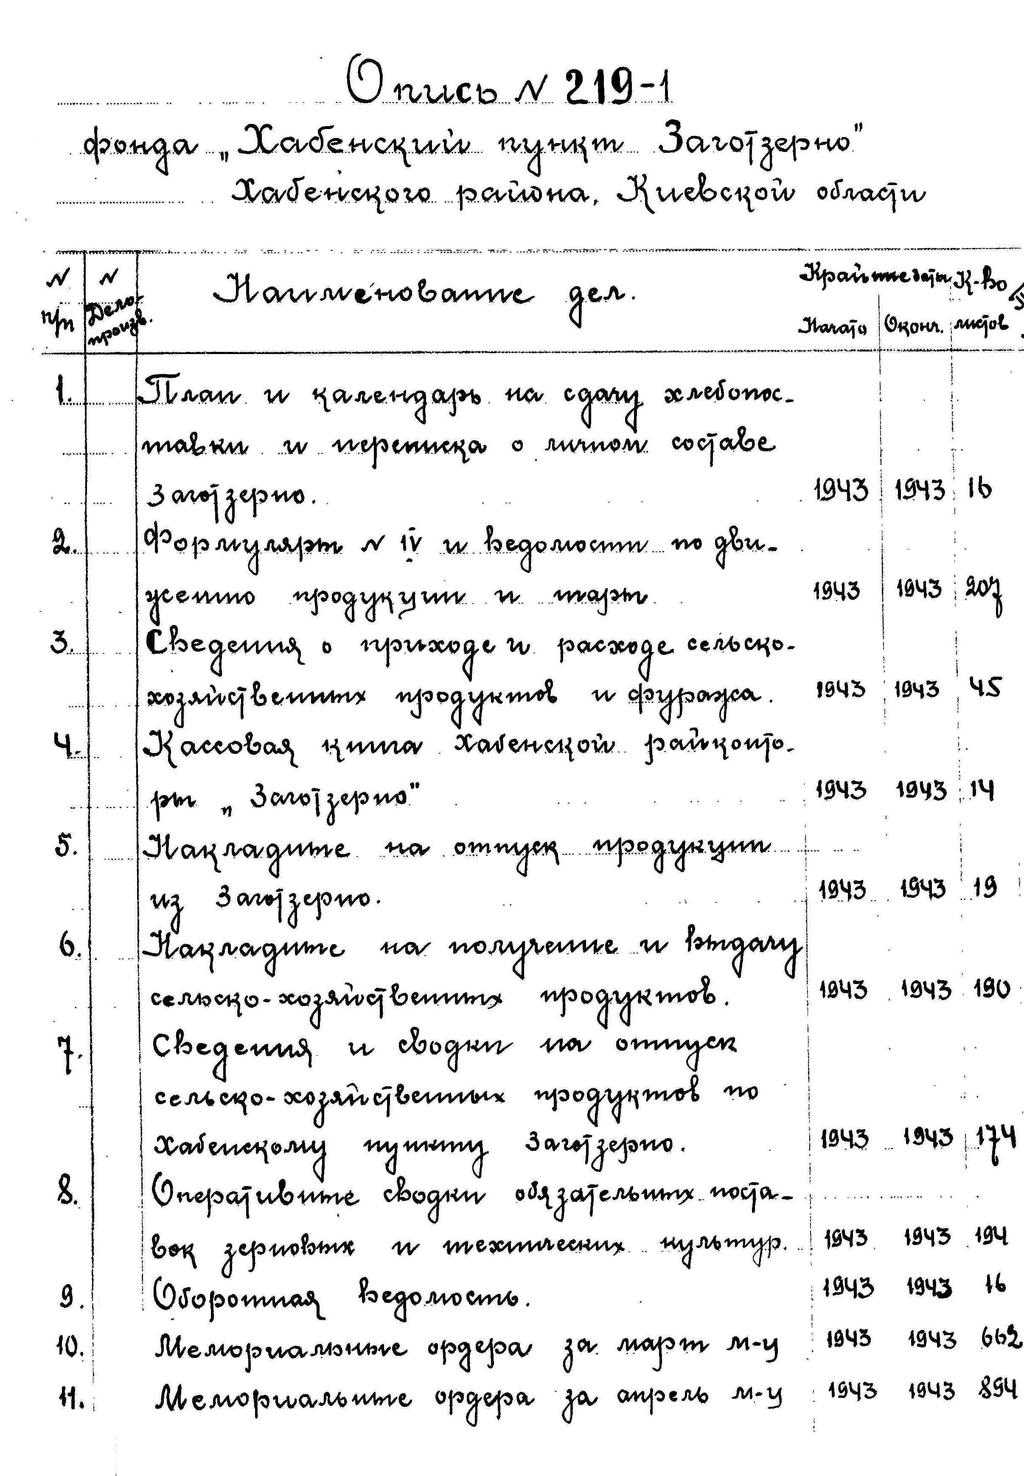 Опись N 219-1
фонда „Хабенский пункт Заготзерно"
Хабенского района, Киевской области
N п/п
N Дело-произв.
Наименование дел.
Крайние даты
К-во листов
Начато
Оконч.
1. План и календарь на сдачу хлебопос-
тавки и переписка о личном составе
Заготзерно. 1943 1943 16
2. Формуляры N IV и ведомости по дви-
жению продукции и тары 1943 1943 207
3. Сведения о приходе и расходе сельско-
хозяйственных продуктов и фуража. 1943 1943 45
4. Кассовая книга Хабенской райконто-
ры „Заготзерно" 1943 1943 14
5. Накладные на отпуск продукции
из Заготзерно. 1943 1943 19
6. Накладные на получение и выдачу
сельско-хозяйственных продуктов. 1943 1943 190
7. Сведения и сводки на отпуск
сельско-хозяйственных продуктов по
Хабенскому пункту Заготзерно. 1943 1943 174
8. Оперативные сводки обязательных поста-
вок зерновых и технических культур. 1943 1943 194
9. Оборотная ведомость. 1943 1943 16
10. Мемориальные ордера за март м-ц 1943 1943 662
11. Мемориальные ордера за апрель м-ц 1943 1943 894